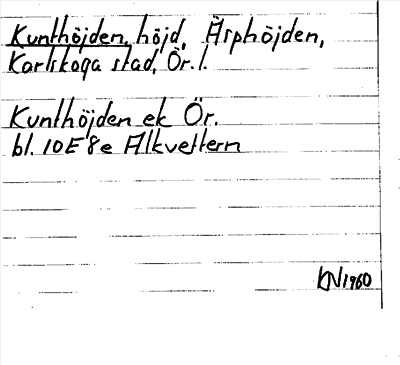 Kunthöjden, höjd, Äsphöjden,
Karlskoga stad, Ör. l.
Kunthöjden ek Ör.
bl. 10E 8e Alkvettern
KN 1960